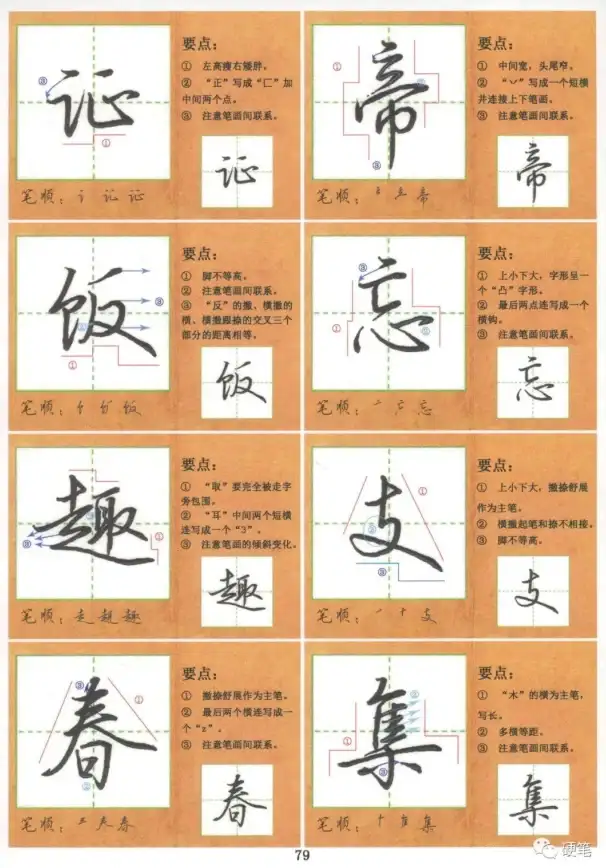 证
要点：
① 左高瘦右矮胖。
② “正”写成“匚”加
中间两个点。
③ 注意笔画间联系。
③
①
笔顺：讠 讠 证
证
帝
要点：
① 中间宽，头尾窄。
② “丷”写成一个短横
并连接上下笔画。
③ 注意笔画间联系。
①
②
③
笔顺：帝
帝
饭
要点：
① 脚不等高。
② 注意笔画间联系。
③ “反”的撇、横撇的
横、横撇跟捺的交叉三个
部分的距离相等。
③
②
①
笔顺：饣 饭
饭
忘
要点：
① 上小下大，字形呈一
个“凸”字形。
② 最后两点连写成一个
横钩。
③ 注意笔画间联系。
③
①
②
笔顺：亠 忘
忘
趣
要点：
① “取”要完全被走字
旁包围。
② “耳”中间两个短横
连写成一个“3”。
③ 注意笔画的倾斜变化。
②
③
①
笔顺：走 趣
趣
支
要点：
① 上小下大，撇捺舒展
作为主笔。
② 横撇起笔和捺不相接。
③ 脚不等高。
①
②
③
笔顺：十 支
支
春
要点：
① 撇捺舒展作为主笔。
② 最后两个横连写成一
个“z”。
③ 注意笔画间联系。
③
①
②
笔顺：春
春
集
要点：
① “木”的横为主笔，
写长。
② 多横等距。
③ 注意笔画间联系。
②
①
③
笔顺：隹 集
集
79
硬笔